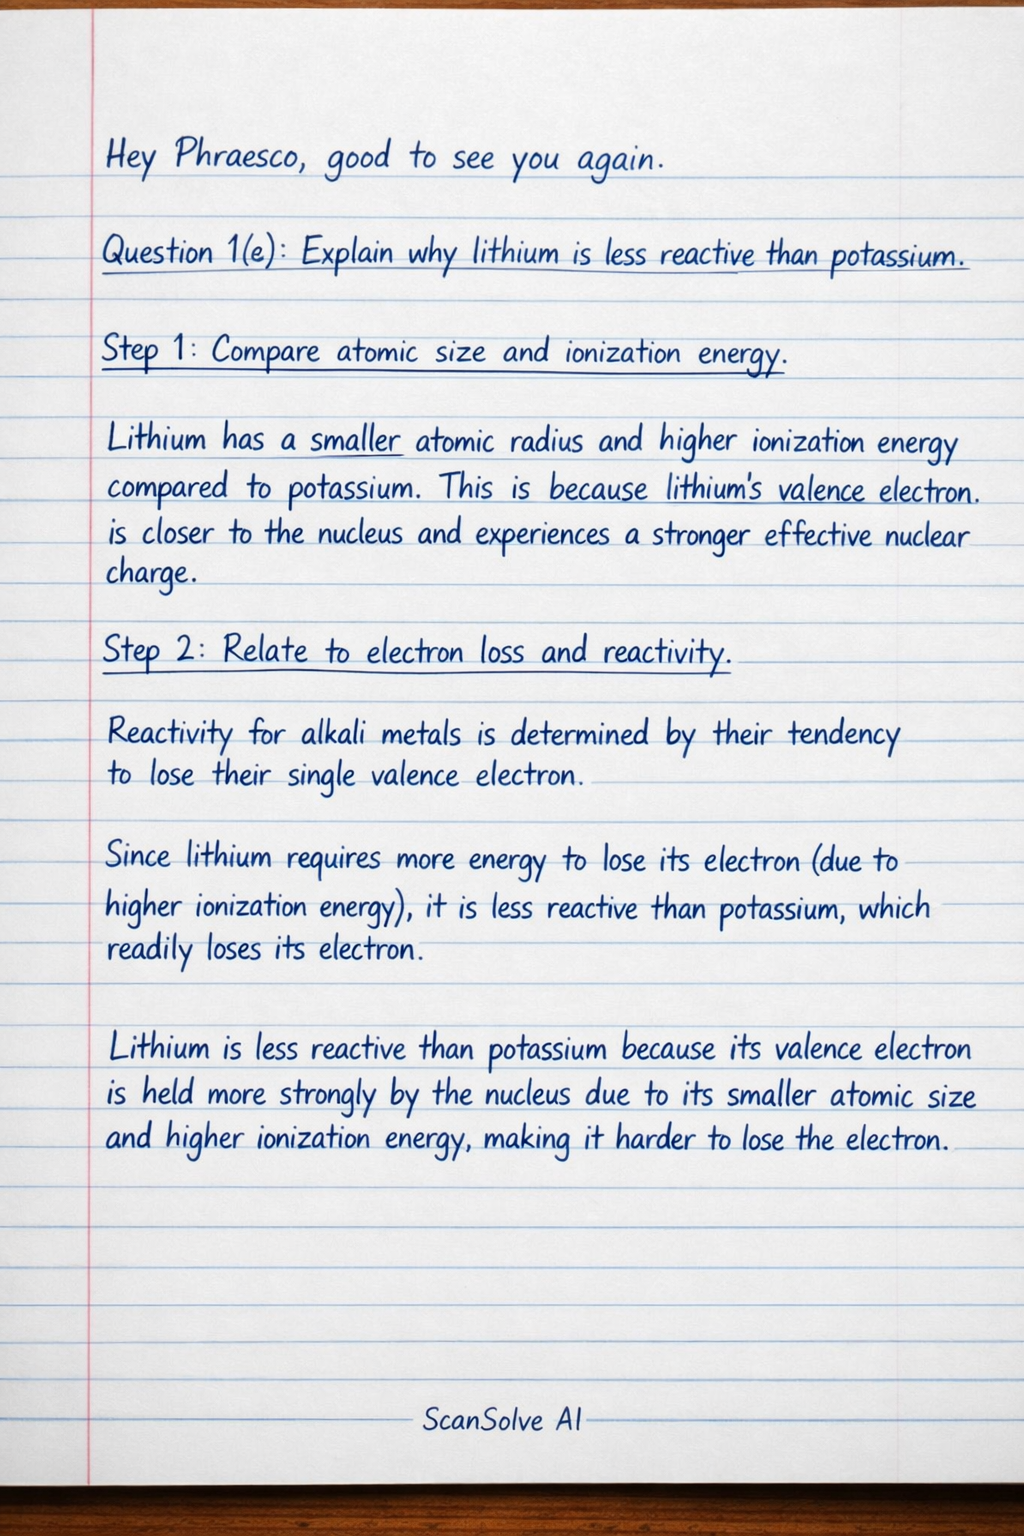 Hey Phraesco, good to see you again.
Question 1(e): Explain why lithium is less reactive than potassium.
Step 1: Compare atomic size and ionization energy.
Lithium has a smaller atomic radius and higher ionization energy
compared to potassium. This is because lithium's valence electron.
is closer to the nucleus and experiences a stronger effective nuclear
charge.
Step 2: Relate to electron loss and reactivity.
Reactivity for alkali metals is determined by their tendency
to lose their single valence electron.
Since lithium requires more energy to lose its electron (due to
higher ionization energy), it is less reactive than potassium, which
readily loses its electron.
Lithium is less reactive than potassium because its valence electron
is held more strongly by the nucleus due to its smaller atomic size
and higher ionization energy, making it harder to lose the electron.
ScanSolve AI